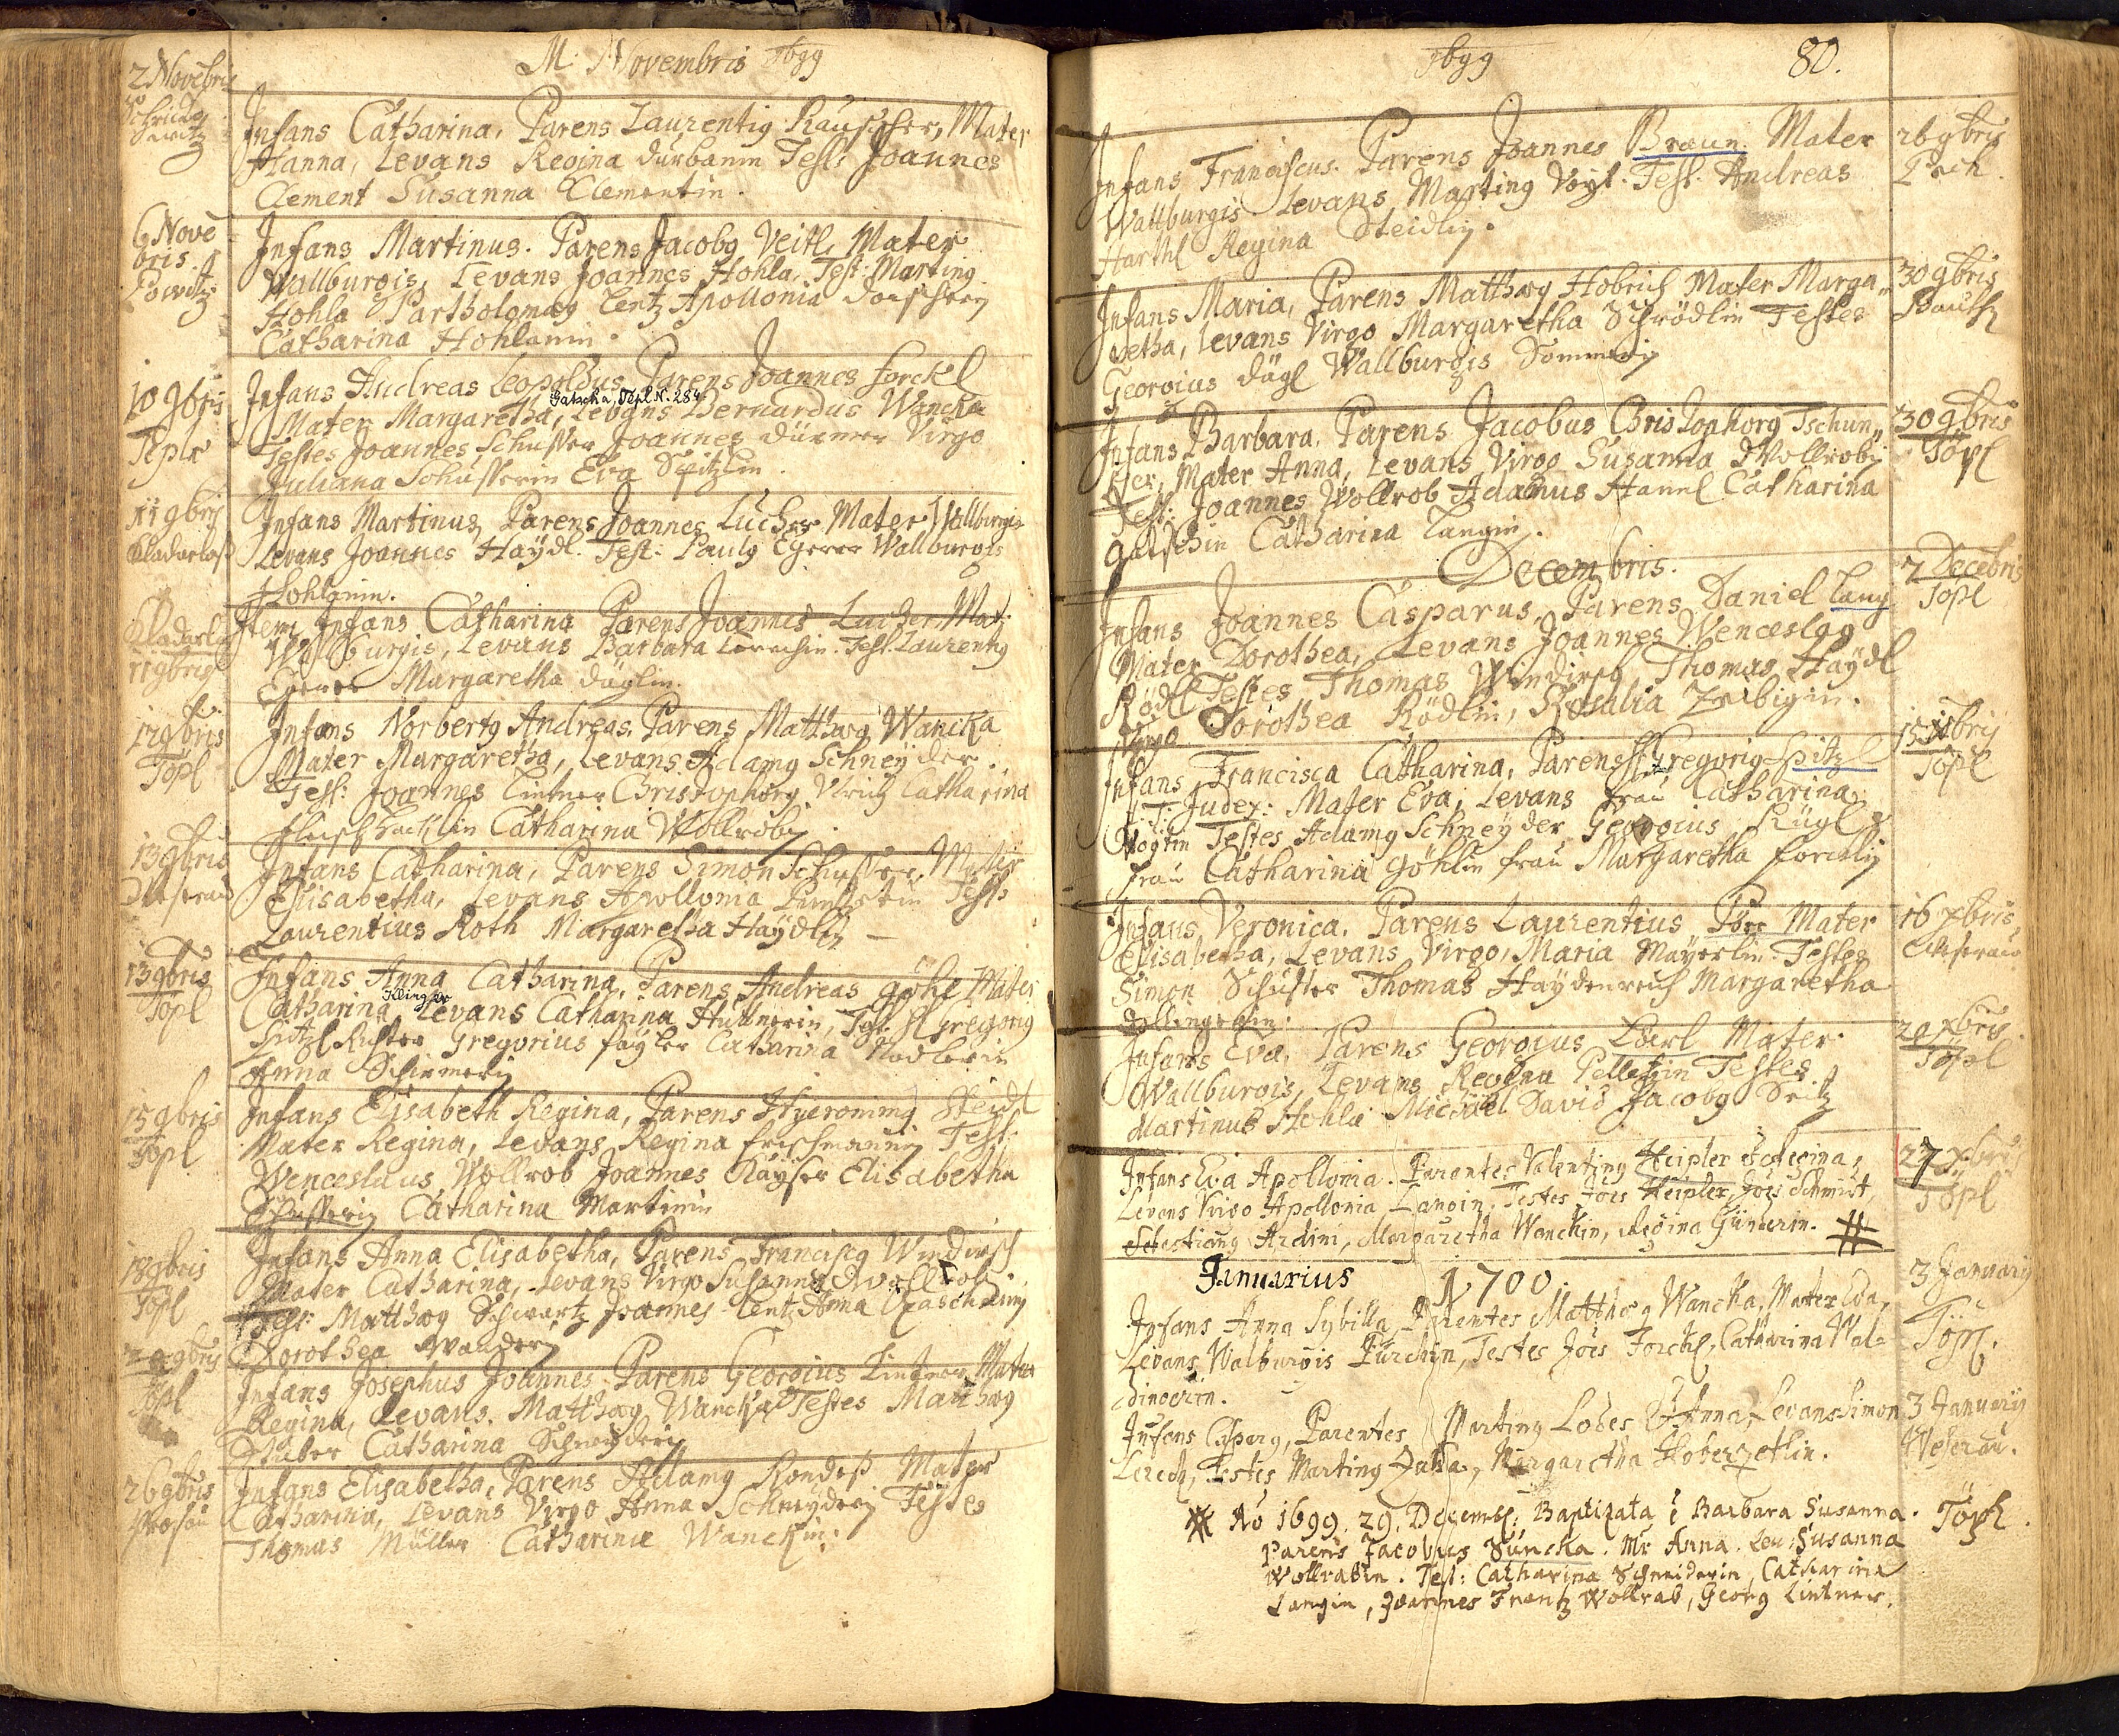 M. Novembris 1699
2 Novebris
Infans Catharina, Parens Laurentiq Rauscher, Mater
Hanna, Levans Regina durbanin Test: Joannes
Clement Susanna Clementin.
6 Nove
bris
Infans Martinus. Parens Jacobq Veitl, Mater
Wallburgis, Levans Joannes Hohla, Test: Martinq
Hohla Partholomæq Lentz Apollonia
Catharina Hohlanin.
10 9bris
Tepl
Infans Andreas Leopoldus Parens Joannes forckl
Gatscha, Tepl N. 284
Mater Margaretha, Levans Bernardus Wancka
Testes Joannes Schusser Joannes dürmer Virgo
Juliana Schusserin Eva Spitzlin.
11 9bris
Infans Martinus Parens Joannes Lucher Mater Wallburgis
Levans Joannes Haÿdl. Test: Paulq Egerer Wallburgis
Hohlanin.
11 9bris
Item Infans Catharina Parens Joannes Lucher Mat:
Wallburgis, Levans Barbara Test. Laurentiq
Egerer Margaretha däglin.
12 9bris
Töpl
Infans Norbertq Andreas. Parens Matthæq Wancka
Mater Margaretha, Levans Adamq Schneÿder.
Test: Joannes Lintner Christophorq Ulrich Catharina
Fleischhacklin Catharina Wollrobin
13 9bris
Infans Catharina, Parens Simon Schusser, Mater
Elisabetha, Levans Apollonia Test:
Laurentius Roth Margaretha Haÿdlin
13 9bris
Töpl
Infans Anna Catharina, Parens Andreas Göhl Mater
Klinger
Catharina Levans Catharina Hübnerin, Test: H Gregoriq
Spitzl Richter Gregorius saÿler Catharina Nodlerin
Anna Schirmerin
15 9bris
Töpl
Infans Elisabeth Regina, Parens Hÿeronimq Steidl
Mater Regina, Levans Regina frischmannin Test:
Wenceslaus Wollrob Joannes Kaÿser Elisabetha
Schusserin Catharina Martinin
18 9bris
Töpl
Infans Anna Elisabetha, Parens Franciscq Windirsch
Mater Catharina, Levans Virgo Susanna Wollrob.
Test: Matthæq Schwartz Joannes Lentz Anna
Dorothea Wanderin
9bris
Töpl
Infans Josephus Joannes. Parens Georgius Lintner Mater
Regina, Levans Matthæq Wancka Testes Matthæq
Stüber Catharina Schneÿderin
26 9bris
Infans Elisabetha, Parens Adamq Rondeß Mater
Catharina, Levans Virgo Anna Schneÿderin Testes
Thomas Müller Catharina Wanckin.
1699
80.
Infans Franciscus. Parens Joannes Braun. Mater
26 9bris
Wallburgis. Levans Martinq Vogt. Test. Andreas
Harthl Regina Steidlin.
Infans Maria, Parens Matthæq Hobrich Mater Marga„
30 9bris
retha, Levans Virgo Margaretha Schrödlin Testes
Georgius dägl Wallburgis Sommerin
Infans Barbara. Parens Jacobus Christophorq Tschun„
30 9bris
Töpl
ker, Mater Anna, Levans Virgo Susanna Wollrobin
Test: Joannes Wollrob Adamus Hannl Catharina
Gatschin Catharina Langin.
Decembris.
7 Decebris
Töpl
Infans Joannes Casparus, Parens Daniel Lang
Mater Dorothea, Levans Joannes Wenceslaq
Rödl Testes Thomas Windirsch, Thomas Haÿdl
Virgo Dorothea Rödlin, Rosalia
15 Xbris
Töpl
Infans Francisca Catharina, Parens H Gregoriq Spitzl
Judex: Mater Eva, Levans frau Catharina
Vogtin Testes Adamq Schneÿder Georgius Kügl
frau Catharina Göhlin frau Margaretha forcklin
16 Xbris
Infans Veronica. Parens Laurentius Mater
Elisabetha, Levans Virgo, Maria Maÿerlin. Testes
Simon Schuster Thomas Haÿdenreich Margaretha
20 Xbris
Töpl
Infans Eva, Parens Georgius Mater
Wallburgis, Levans Regina Pelletzin Testes
Martinus Hohla Michäel David Jacobq Seitz
27 Xbris
Töpl
Infans Eva Apollonia. Parentes Valentinq Heipler et Regina,
Levans Virgo Apollonia Langin, Testes Jois Heipler, Jois Schmidt,
Sebestianq Ardini, Margaretha Wanckin, Regina Günterin. #
Januarius 1700.
3 Januarij
Töpl.
Infans Anna Sybilla Parentes Matthæq Wancka, Mater Eva,
Levans Walburgis Pürchin, Testes Jois Forckl, Catharina Wal=
dingerin.
3 Januarij
Infans Casparq, Parentes Martinq Lobes et Anna, Levans Simon
Lerch, Testes Martinq Margaretha Hoberzetlin.
# Aõ 1699. 29. Decemb: Baptizata ẽ Barbara Susanna. Töpl.
Parens Jacobus Suncka. Mr Anna. Lev: Susanna
Wollrabin. Test: Catharina Schneiderin, Catharina
Langin, Joannes Frantz Wollrab, Georg Lintner.